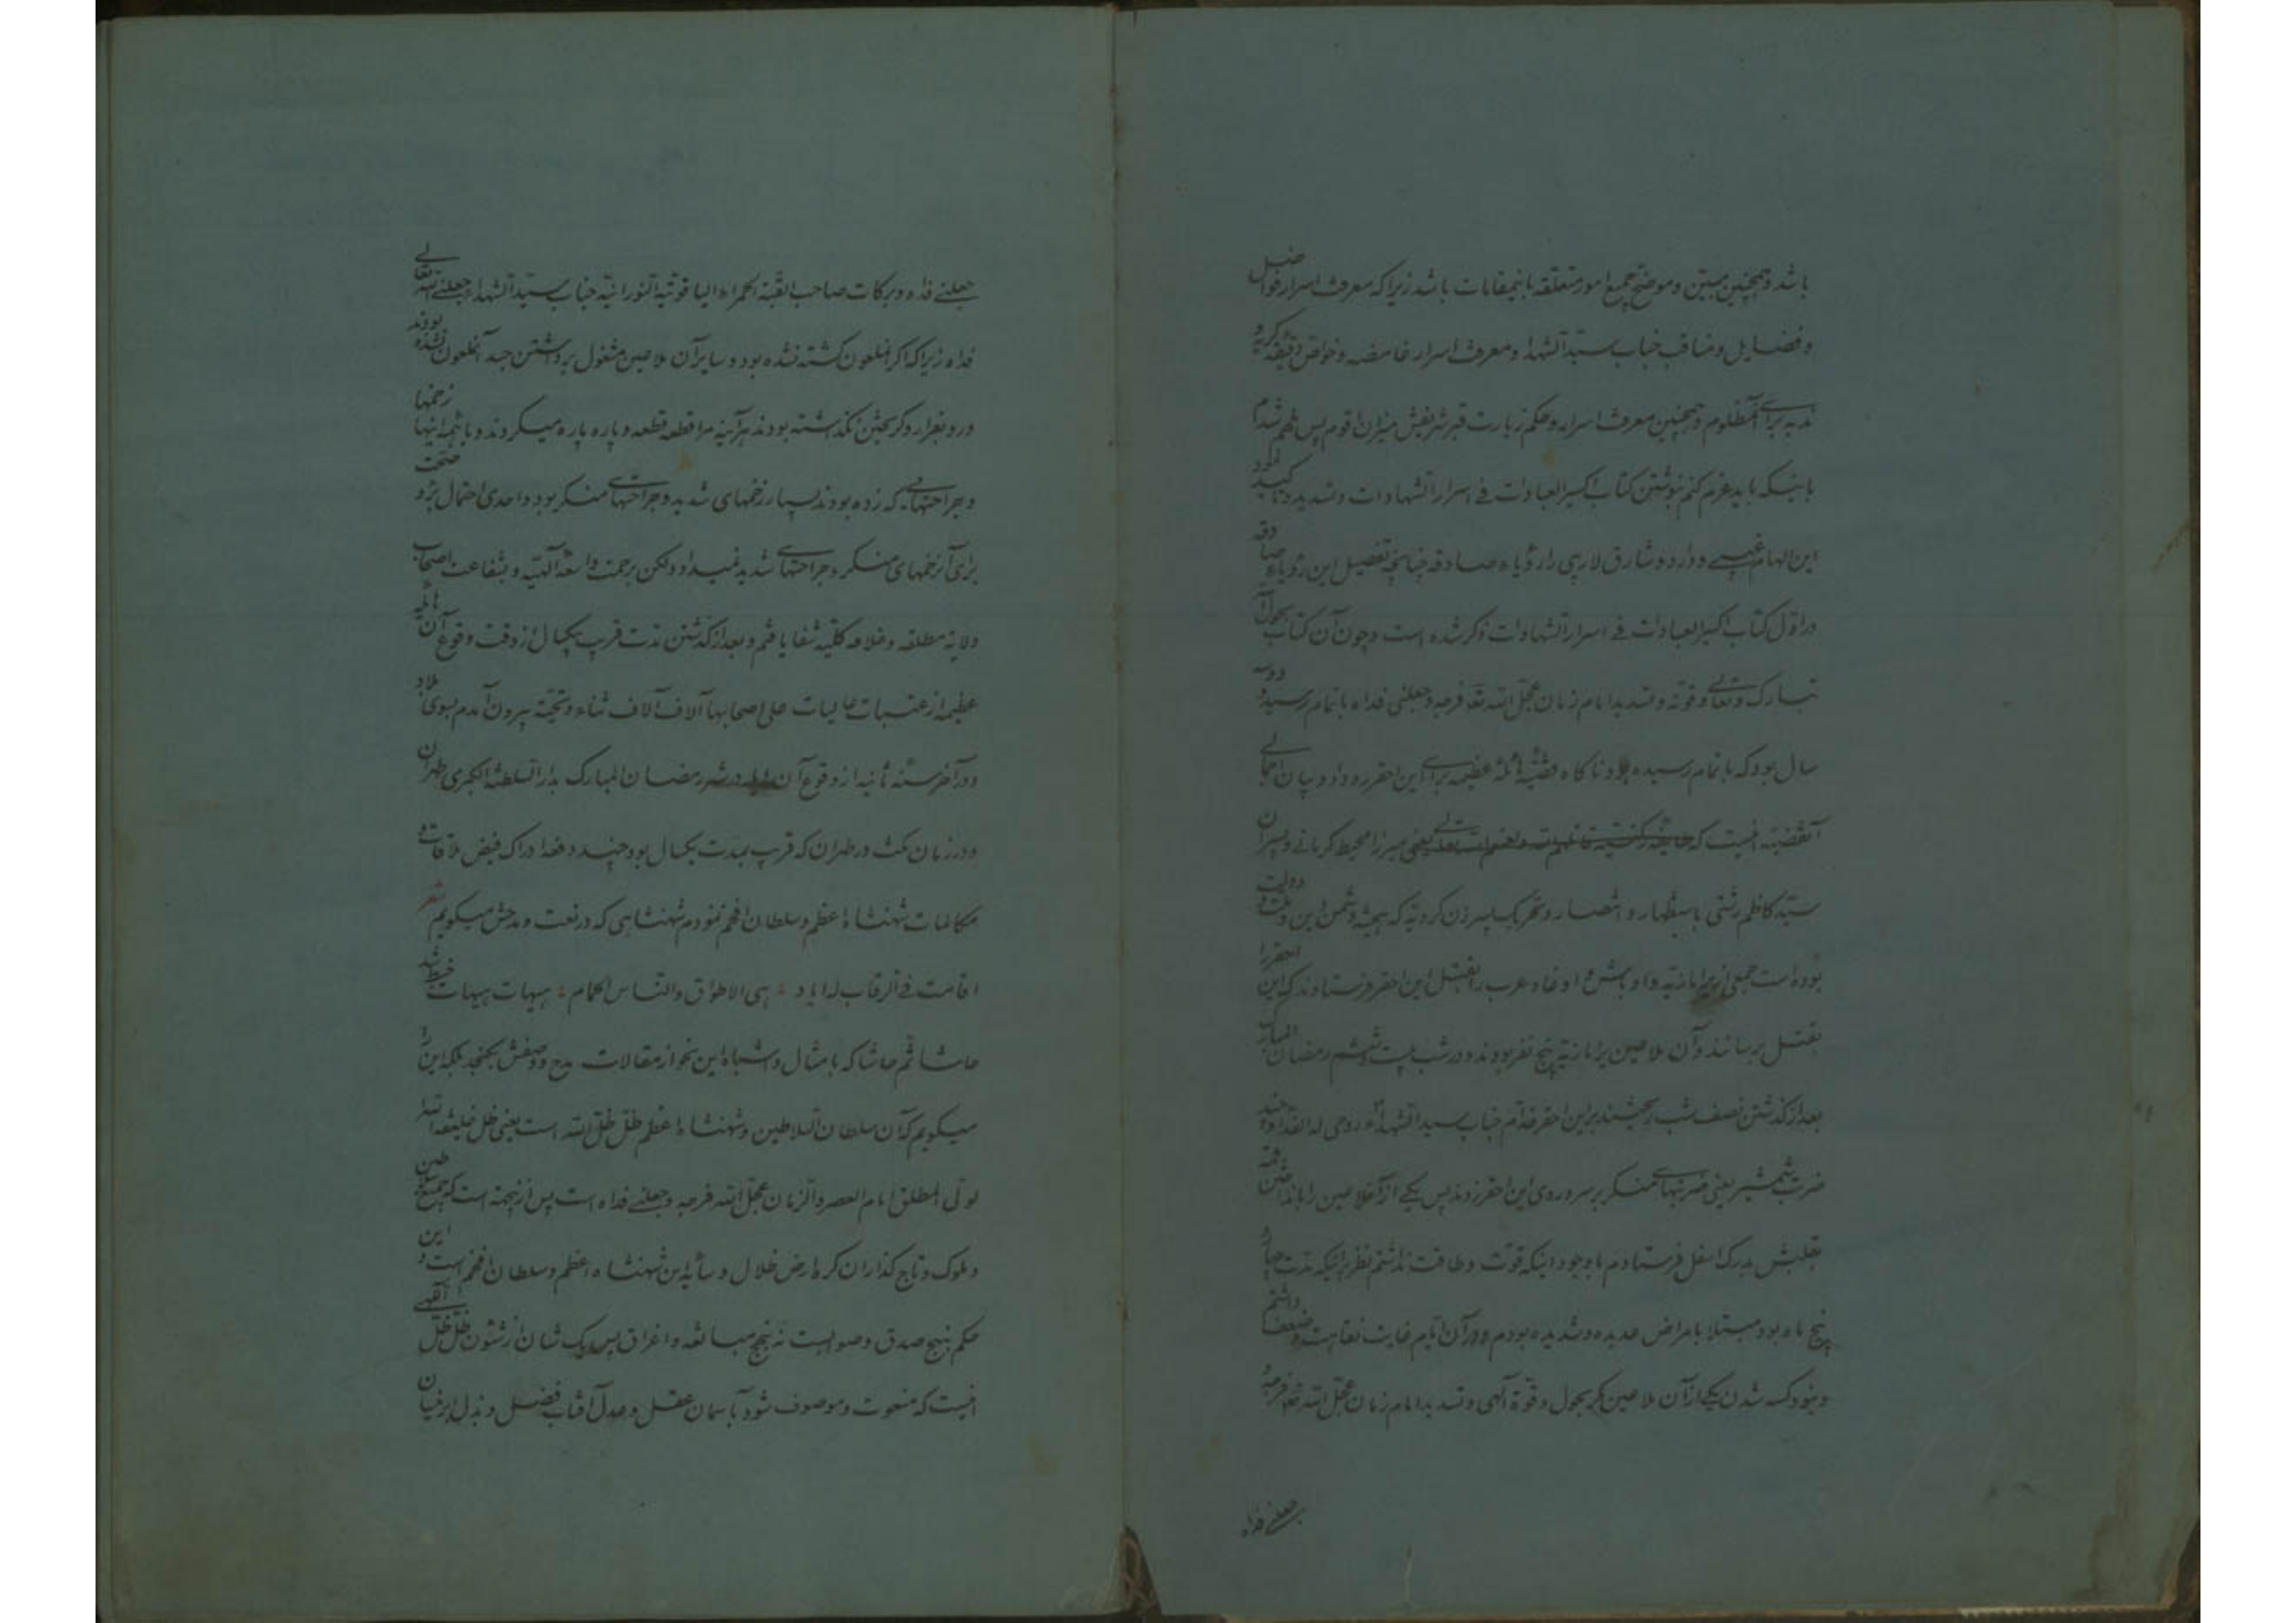 باشد و همچنین مبیّن و موضّح جمیع امور متعلقه باینمقامات باشد زیرا که معرفت اسرار فواضل
و فضایل و مناقب جناب سیّد الشهدا و معرفت اسرار غامضه و خواص دقیقه گریه و
ندبه برای آنمظلوم و همچنین معرفت اسرار و حکم زیارت قبر شریفش میزان اقوم پس ملهم شدم
باینکه باید عزم کنم بنوشتن کتاب اکسیر العبادات فی اسرار الشهادات و تسدید و تاکید نمود
این الهام غیبی و وارد و شارق لاریبی را رؤیاء صادقه چنانچه تفصیل این رؤیاء صادقه
در اوّل کتاب اکسیر العبادات فی اسرار الشهادات ذکر شده است و چون آن کتاب بحول الله
تبارک و تعالی و قوّته و تسدید امام زمان عجّل الله تعا فرجه و جعلنی فداه باتمام رسید و دو سه
سال بود که باتمام رسیده بود ناگاه قضیّه هائله عظیمه برای این احقر رو داد و بیان اجمالی
آنقضیّه اینست که یعنی میرزا محیط کرمانی و پسران
سیّد کاظم رشتی باستظهار و انتصار و تحریک پسر زن کرویّه که همیشه دشمن این دولت و ملت
بوده است جمعی از یرامازیّه و اوباش و اوغاد عرب را بقتل این احقر فرستادند که این احقر را
بقتل برسانند و آن ملاعین یرامازیّه پنج نفر بودند و در شب بیست و ششم رمضان المبارک
بعد از گذشتن نصف شب ریختند بر این احقر خدّام جناب سید الشهداء روحی له الفداء و چند
ضرب شمشیر یعنی ضربتهای منکر بر سر و روی این احقر زدند پس یکی از آنملاعین را باذن
بدرک اسفل فرستادم با وجود اینکه قوّت و طاقت نداشتم نظر باینکه مدت چهار
پنج ماه بود مبتلا بامراض عدیده و شدیده بودم و در آن ایّام غایت نقاهت و ضعف داشتم
و نبود کشته شدن یکی از آن ملاعین مگر بحول و قوّة آلهی و تسدید امام زمان عجّل الله تعا فرجه و
جعلنی فداه
جعلنی فداه و برکات صاحب القبّة الحمراء الیاقوتیّة النورانیّة جناب سیّد الشهداء جعلنی الله تعالی
فداه زیرا که اگر آنملعون کشته نشده بود و سایر آن ملاعین مشغول برداشتن جسد آنملعون نشده بودند
و رو بفرار و گریختن نگذاشته بودند هرآینه مرا قطعه قطعه و پاره پاره میکردند و با همه اینها زخمها
و جراحتهایی که زده بودند بسیار زخمهای شدید و جراحتهای منکر بود و احدی احتمال صحت
برای آن زخمهای منکر و جراحتهای شدید نمیداد ولکن برحمت واسعه آلهیّه و بشفاعت اصحاب
ولایة مطلقه و خلافة کلّیه شفا یافتم و بعد از گذشتن مدت قریب بیکسال از وقت وقوع آن هائله
عظیمه از عتبات عالیات علی اصحابها آلاف آلاف ثناء و تحیّة بیرون آمدم بسوی بلاد
و در آخر سنه ثانیه از وقوع آن در شهر رمضان المبارک بدار السلطنة الکبری طهران
و در زمان مکث در طهران که قریب بمدت یکسال بود چند دفعه ادراک فیض ملاقات و
مکالمات شهنشاه اعظم و سلطان افخم نمودم شهنشاهی که در نعت و مدحش میگویم شعر
اقامت فی الرقاب له ایاد ؛ هی الاطواق و الناس الحمام ؛ هیهات هیهات
حاشا ثم حاشا که بامثال و اشباه این نحو از مقالات مدح و وصفش بگنجد بلکه این را
میگویم که آن سلطان السلاطین و شهنشاه اعظم ظلّ ظلّ الله است یعنی ظل خلیفة الله
لولی المطلق امام العصر و الزمان عجّل الله فرجه و جعلنی فداه است پس از اینجهة است که جمیع سلاطین
و ملوک و تاج گذاران کره ارض ظلال و سایه این شهنشاه اعظم و سلطان افخم است و این
حکم بنهج صدق و صوابست نه بنهج مبالغه و اغراق پس یک شان از شئون ظلّ ظلّ آلهی
اینست که منعوت و موصوف شود بآسمان عقل و عدل آفتاب فضل و بذل ابر